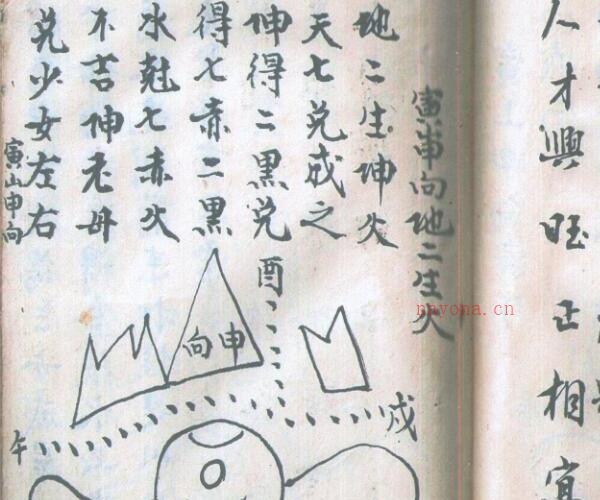 人才興旺正相宜
寅申向地二生火
地二生坤火
天七兑成之
坤得二黑兑
得七赤二黑
水尅七赤火
不吉坤老母
兑少女左右
寅山申向
酉
申向
戌
午
nayona.cn